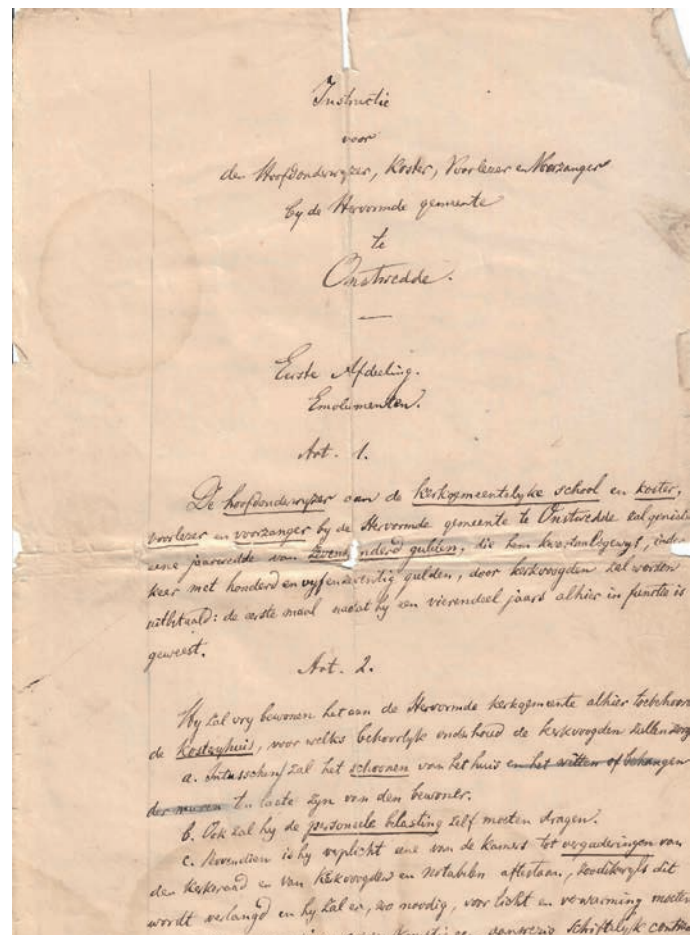 Instructie
voor
den Hoofdonderwyzer, Koster, Voorlezer en Voorzanger
by de Hervormde gemeente
te
Onstwedde.
Eerste Afdeeling.
Emolumenten.
Art. 1.
De hoofdonderwyzer aan de kerkgemeentelyke school en koster,
voorlezer en voorzanger by de Hervormde gemeente te Onstwedde zal genieten
eene jaarwedde van zevenhonderd gulden, die hem kwartaalsgewyz, ieder
keer met honderd en vyfenzeventig gulden, door kerkvoogden zal worden
uitbetaald: de eerste maal nadat hy een vierendeel jaars alhier in functie is
geweest.
Art. 2.
Hy zal vry bewonen het aan de Hervormde kerkgemeente alhier toebehoor
de kosteryhuis, voor welks behoorlyk onderhoud de kerkvoogden zullen zorg
a. Intusschen zal het schoonen van het huis en het witten of behangen
der muren te laste zyn van den bewoner.
b. Ook zal hy de personele belasting zelf moeten dragen.
c. Bovendien is hy verplicht eene van de kamers tot vergaderingen van
den kerkeraad en van kerkvoogden en notabelen aftestaan, zoodikwyls dit
wordt verlangd en hy zal er, zoo noodig, voor licht en verwarming moeten
schiftelyk